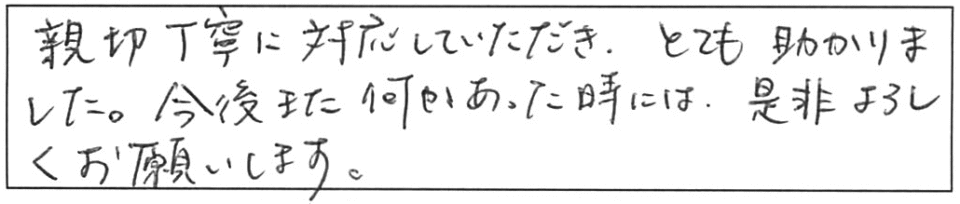 親切丁寧に対応していただき、とても助かりま
した。今後また何かあった時には、是非よろし
くお願いします。